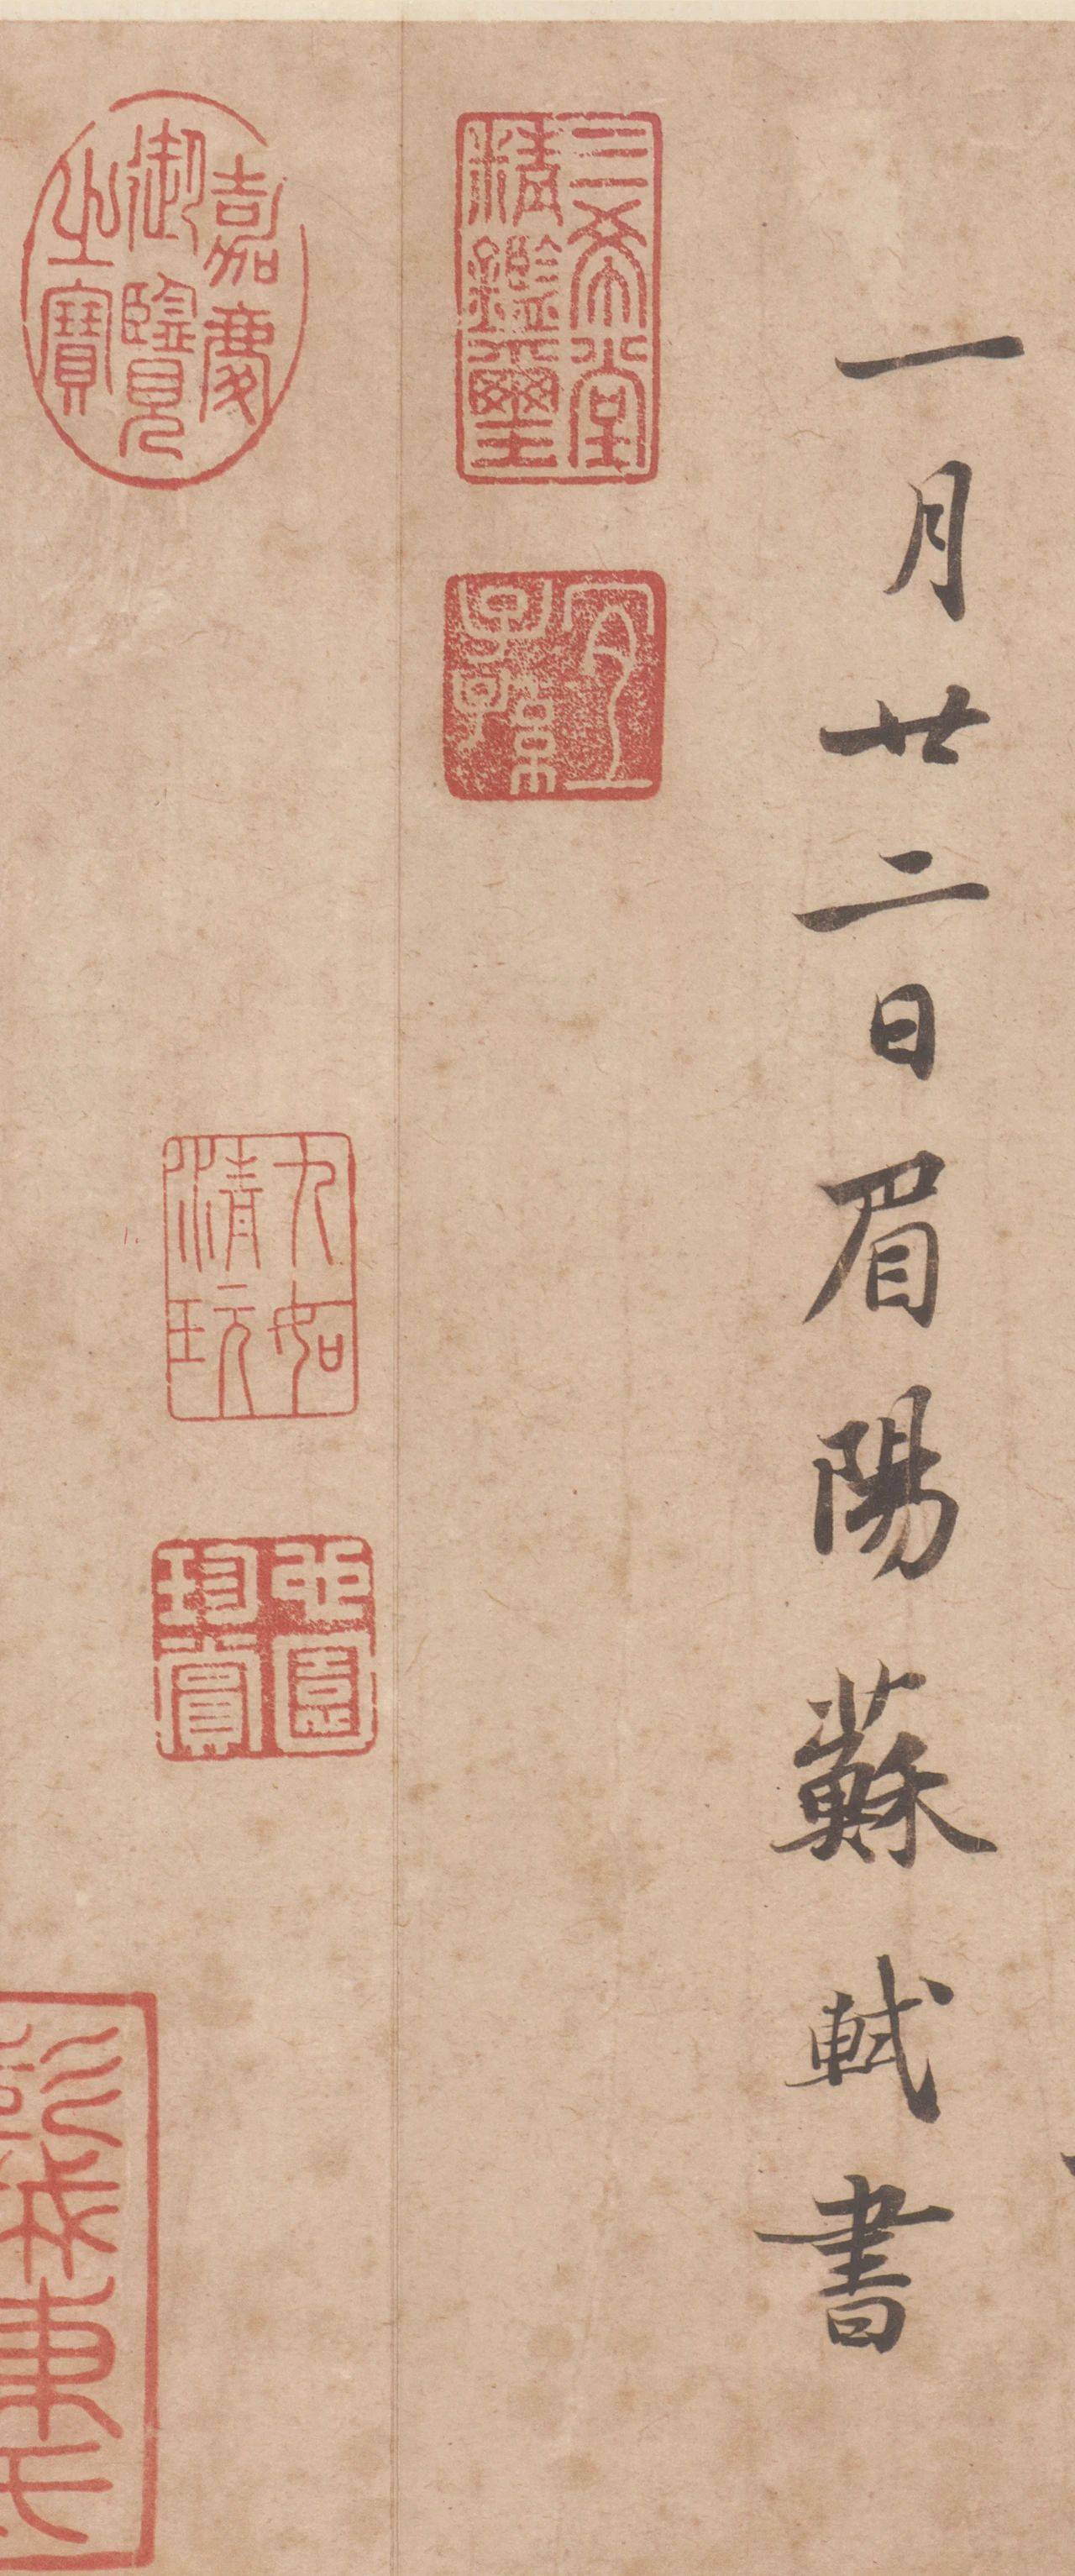 一月廿二日眉陽蘇軾書
三希堂
精鑑璽
宜
子孫
嘉慶
御覽
之寶
九如
清玩
珍賞